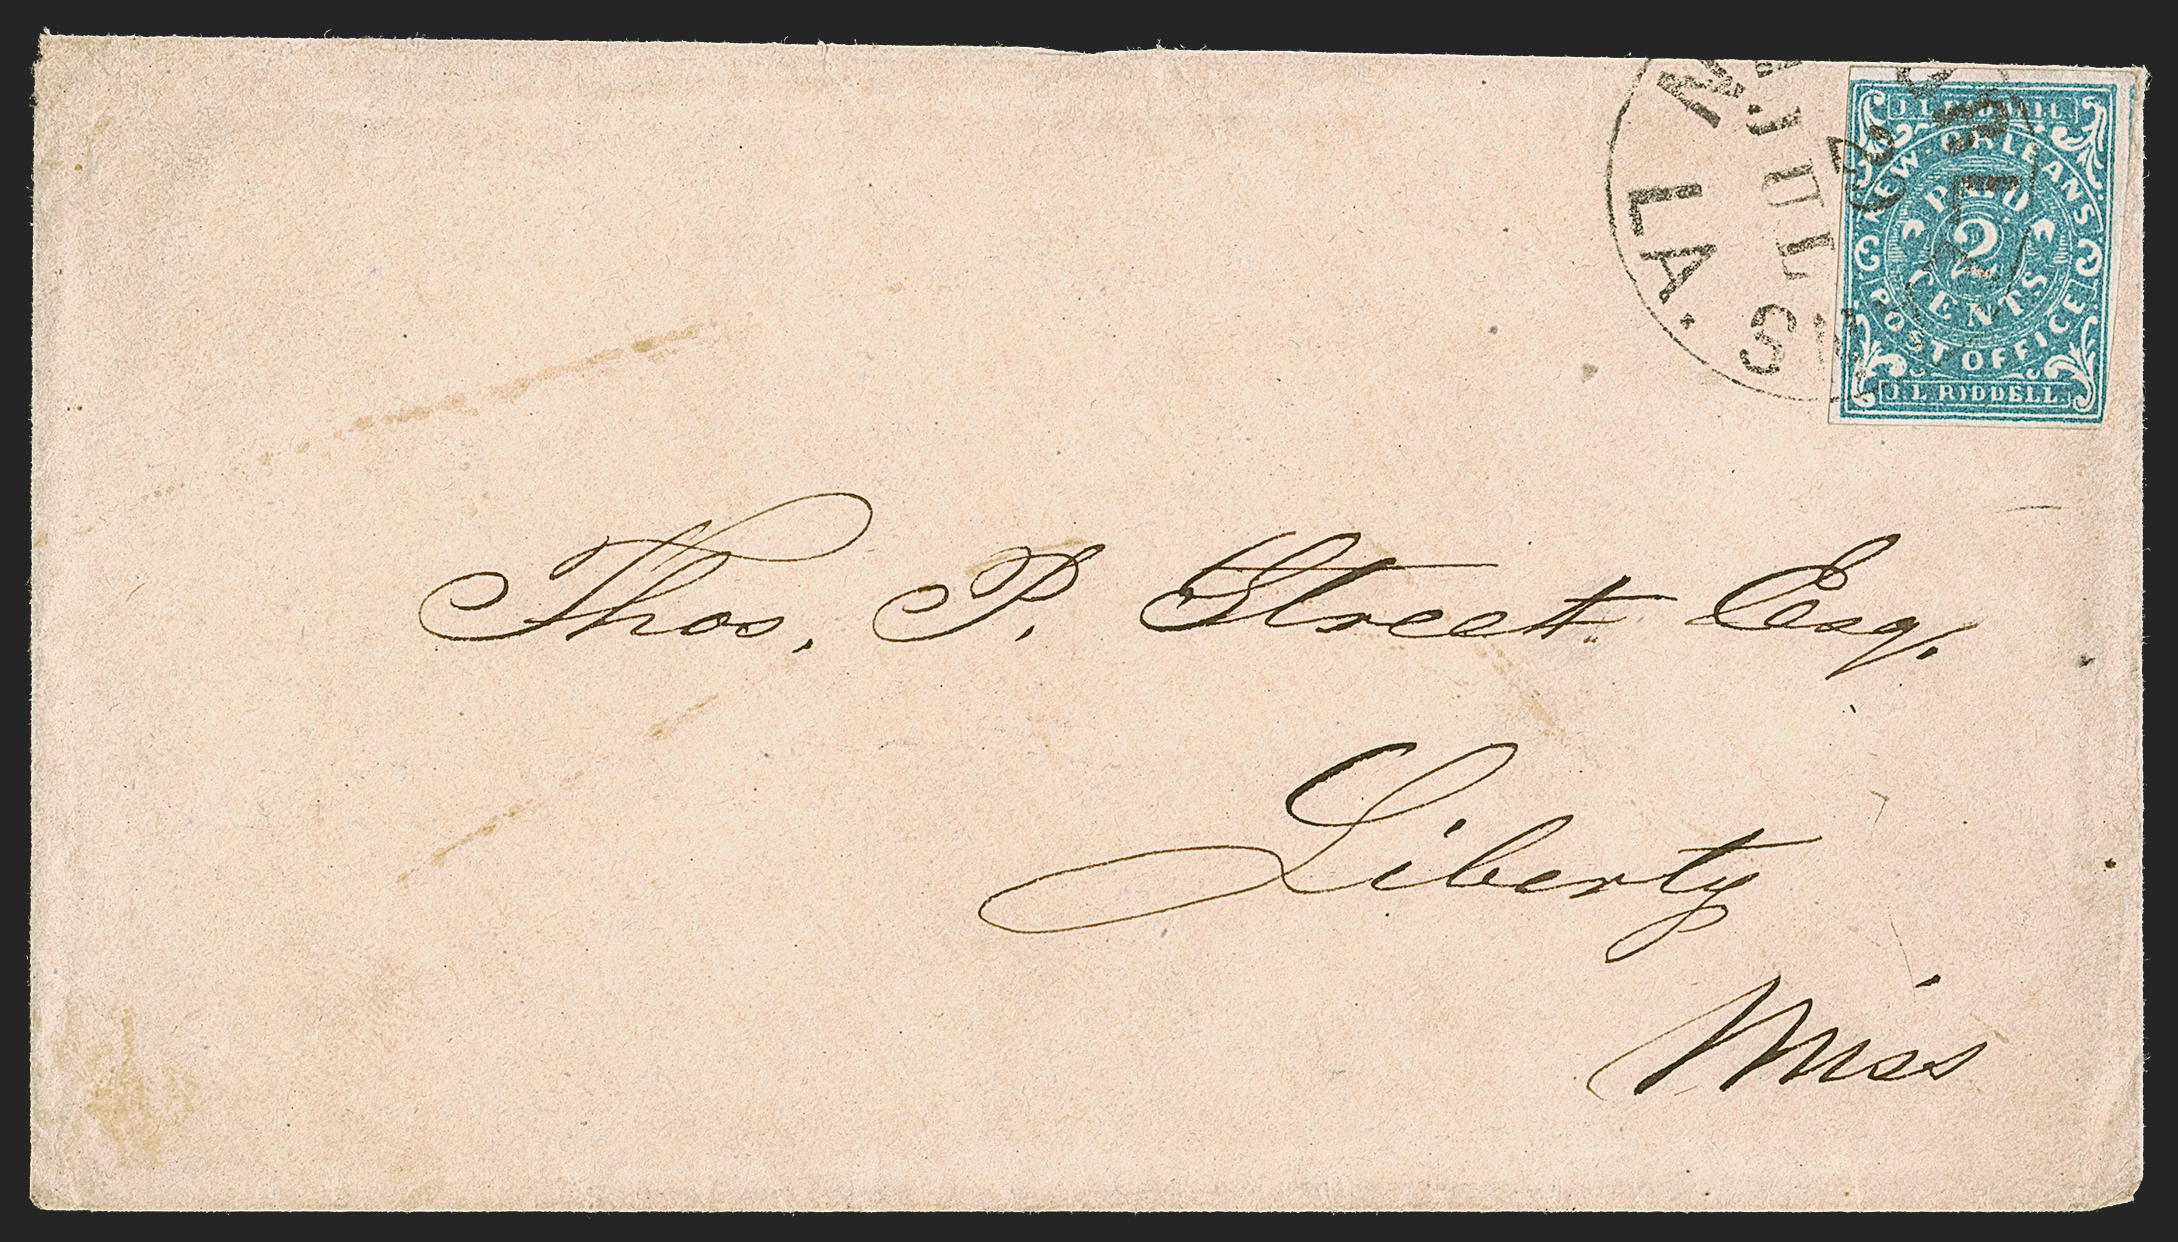 J.L. RIDDELL
NEW ORLEANS
PAID
2
CENTS
POST OFFICE
J.L. RIDDELL
LA.
Thos. P. Street Esq.
Liberty
Miss